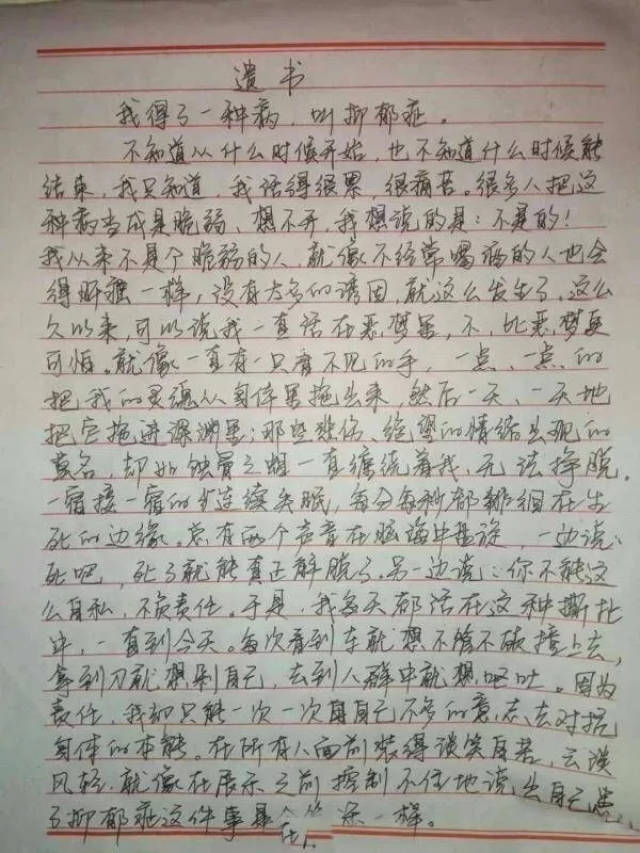 遗书
我得了一种病，叫抑郁症。
不知道从什么时候开始，也不知道什么时候能
结束，我只知道，我活得很累，很痛苦。很多人把这
种病当成是脆弱、想不开，我想说的是：不是的！
我从来不是个脆弱的人，就像不经常喝酒的人也会
得肝癌一样，没有太多的诱因，就这么发生了。这么
久以来，可以说我一直活在恶梦里，不，比恶梦更
可怕。就像一直有一只看不见的手，一点、一点的
把我的灵魂从身体里拖出来，然后一天、一天地
把它拖进深渊里；那些悲伤、绝望的情绪出现的
莫名，却如蚀骨之蛆一直缠绕着我，无法挣脱。
一宿接一宿的连续失眠，每分每秒都徘徊在生
死的边缘。总有两个声音在脑海中盘旋，一边说：
死吧，死了就能真正解脱了。另一边说：你不能这
么自私，不负责任。于是，我每天都活在这种撕扯
中，一直到今天。每次看到车就想不管不顾撞上去，
拿到刀就想剁自己，去到人群中就想呕吐。因为
责任，我却只能一次一次用自己不多的意志去对抗
身体的本能。在所有人面前装得谈笑自若，云淡
风轻，就像在展示之前控制不住地说出自己患
了抑郁症这件事是一样。